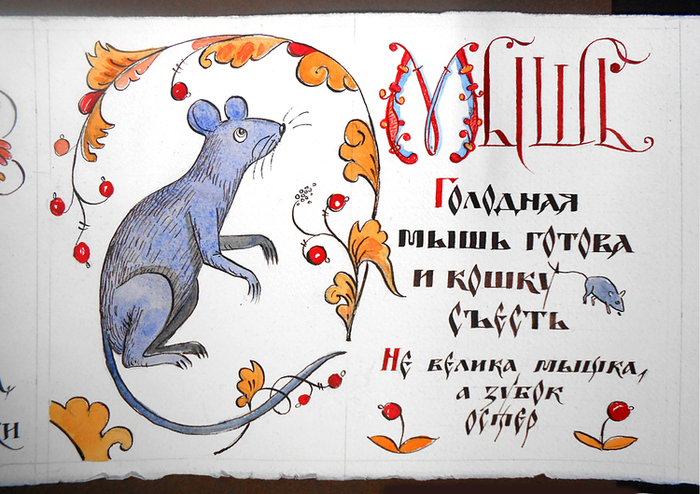 Мышь
Голодная
мышь готова
и кошку
съесть
Не велика мышка,
а зубок
остер
ки